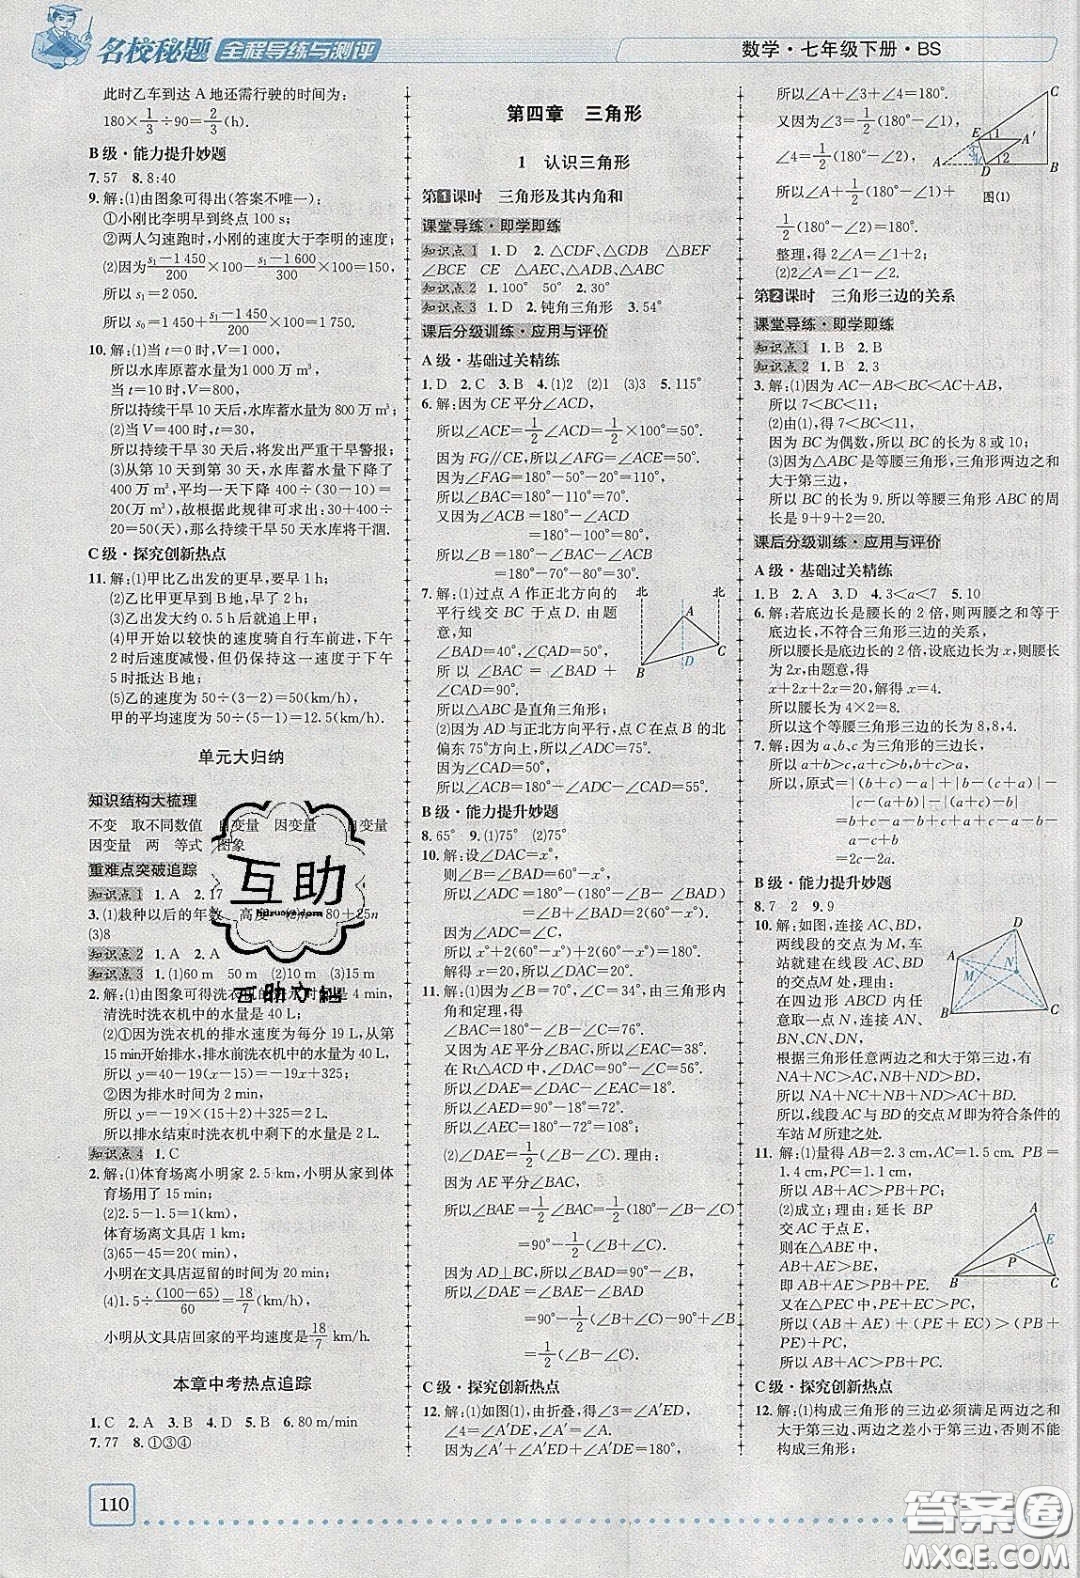 名校秘题 全程导练与测评
数学·七年级下册·BS
此时乙车到达 A 地还需行驶的时间为:
180×1/3÷90=2/3(h).
B 级·能力提升妙题
7. 57 8. 8:40
9. 解:(1)由图象可得出(答案不唯一).
①小刚比李明早到终点 100 s;
②两人匀速跑时,小刚的速度大于李明的速度;
(2)因为(s₁-1 450)/200×100-(s₁-1 600)/200×100=50,
所以 s₁=2 050.
所以 s₁=1 450+(s₁-1 450)/200×100=1 750.
10. 解:(1)当 t=0 时,V=1 000,
所以水库原蓄水量为 1 000 万 m³.
当 t=10 时,V=800,
所以持续干旱 10 天后,水库蓄水量为 800 万 m³.
(2)当 V=400 时,t=30,
所以持续干旱 30 天后,将发出严重干旱警报;
(3)从第 10 天到第 30 天,水库蓄水量下降了
400 万 m³,平均一天下降 400÷(30-10)=
20(万 m³),故根据此规律可求出:30+400÷
20=50(天),那么持续干旱 50 天水库将干涸.
C 级·探究创新热点
11. 解:(1)甲比乙出发的更早,要早 1 h;
(2)乙比甲早到 B 地,早了 2 h;
(3)乙出发大约 0.5 h 后追上甲;
(4)甲开始以较快的速度骑自行车前进,下午
2 时后速度减慢,但仍保持这一速度于下午
5 时抵达 B 地;
(5)乙的速度为 50÷(3-2)=50(km/h),
甲的平均速度为 50÷(5-1)=12.5(km/h).
单元大归纳
知识结构大梳理
不变 取不同数值 自变量 因变量 自变量
因变量 两 等式 图象
重难点突破追踪
知识点1 1. A 2. 17
3. (1)栽种以后的年数 高度 (2)h=80+25n
(3)8
知识点2 1. A 2. A
知识点3 1. (1)60 m 50 m (2)10 m (3)15 m
2. 解:(1)由图象可得洗衣机的进水时间是 4 min,
清洗时洗衣机中的水量是 40 L;
(2)①因为洗衣机的排水速度为每分 19 L,从第
15 min开始排水,排水前洗衣机中的水量为 40 L,
所以 y=40-19(x-15)=-19x+325;
②因为排水时间为 2 min,
所以 y=-19×(15+2)+325=2(L).
所以排水结束时洗衣机中剩下的水量是 2 L.
知识点4 1. C
2. 解:(1)体育场离小明家 2.5 km,小明从家到体
育场用了 15 min;
(2)2.5-1.5=1(km),
体育场离文具店 1 km;
(3)65-45=20(min),
小明在文具店逗留的时间为 20 min;
(4)1.5÷(100-65)/60=18/7(km/h),
小明从文具店回家的平均速度是18/7 km/h.
本章中考热点追踪
1. C 2. A 3. B 4. D 5. B 6. 80 m/min
7. 77 8. ①③④
110
第四章 三角形
1 认识三角形
第1课时 三角形及其内角和
课堂导练·即学即练
知识点1 1. D 2. △CDF、△CBD、△BEF
∠BCE CE △AEC、△ADB、△ABC
知识点2 1. 100° 50° 2. 30°
知识点3 1. D 2. 钝角三角形 3. 54°
课后分级训练·应用与评价
A 级·基础过关精练
1. D 2. C 3. B 4. (1)2 (2)1 (3)3 5. 115°
6. 解:因为 CE 平分∠ACD,
所以∠ACE=1/2∠ACD=1/2×100°=50°.
因为 FG∥CE,所以∠AFG=∠ACE=50°.
因为∠FAG=180°-50°-20°=110°,
所以∠BAC=180°-∠FAG=180°-110°=70°.
又因为∠ACB=180°-∠ACD
=180°-100°=80°,
所以∠B=180°-∠BAC-∠ACB
=180°-70°-80°=30°.
7. 解:(1)过点 A 作正北方向的
平行线交 BC 于点 D. 由题
意,知
∠BAD=40°,∠CAD=50°.
所以∠BAC=∠BAD+
∠CAD=90°.
所以△ABC 是直角三角形;
(2)因为 AD 与正北方向平行,点 C 在点 B 的北
偏东 75°方向上,所以∠ADC=75°.
因为∠CAD=50°,
所以∠C=180°-50°-75°=55°.
北 北 A B C D
B 级·能力提升妙题
8. 65° 9. (1)75° (2)75°
10. 解:设∠DAC=x°,
则∠B=∠BAD=60°-x°,
所以∠ADC=180°-∠ADB=∠B+∠BAD=
2(60°-x°).
因为∠ADC=∠C,
所以 x°+2(60°-x°)+2(60°-x°)=180°.
解得 x=20. 所以∠C=2(60°-x°)=80°.
11. 解:(1)因为∠B=70°,∠C=34°,由三角形内角
和定理,得
∠BAC=180°-∠B-∠C=76°.
又因为 AE 平分∠BAC,所以∠EAC=38°.
在 Rt△ACD 中,∠DAC=90°-∠C=56°.
所以∠DAE=∠DAC-∠EAC=18°.
所以∠AED=90°-18°=72°;
(2)∠DAE=1/2(∠B-∠C).理由:
因为 AE 平分∠BAC,
所以∠BAE=1/2∠BAC=1/2(180°-∠B-∠C)
=90°-1/2(∠B+∠C).
因为 AD⊥BC,所以∠BAD=90°-∠B.
所以∠DAE=∠BAE-∠BAD
=90°-1/2(∠B+∠C)-90°+∠B
=1/2(∠B-∠C).
C 级·探究创新热点
12. 解:(1)如图(1),由折叠,得∠3=∠A′ED,
∠4=∠A′DE,∠A=∠A′.
因为∠A′+∠A′ED+∠A′DE=180°,
所以∠A+∠3+∠4=180°.
又因为∠3=1/2(180°-∠1),
∠4=1/2(180°-∠2),
所以∠A+1/2(180°-∠1)
+1/2(180°-∠2)=180°.
整理,得 2∠A=∠1+∠2;
(2)2∠A=∠1-∠2.
C E 1 A′ 3 4 2 A D B 图(1)
第2课时 三角形三边的关系
课堂导练·即学即练
知识点1 1. B 2. B
知识点2 1. B 2. 3
3. 解:(1)因为 AC-AB<BC<AC+AB,
所以 7<BC<11;
(2)由(1),得 7<BC<11,
因为 BC 为偶数,所以 BC=8 或 10;
(3)因为△ABC 是等腰三角形,三角形两边之和
大于第三边,
所以 BC 的长为 9. 所以等腰三角形 ABC 的周
长是 9+9+2=20.
课后分级训练·应用与评价
A 级·基础过关精练
1. B 2. A 3. D 4. 3<a<7 5. 10
6. 解:若底边长是腰长的 2 倍,则两腰之和等于
底边长,不符合三角形三边的关系,
所以腰长是底边长的 2 倍,设底边长为 x,则腰
长为 2x,由题意,得
x+2x+2x=20. 解得 x=4.
所以腰长为 4×2=8.
所以这个等腰三角形三边的长为 8,8,4.
7. 解:因为 a、b、c 为三角形的三边长,
所以 a+b>c,a+c>b,b+c>a.
所以,原式=|(b+c)-a|+|b-(c+a)|-
|c-(a+b)|-|(a+c)-b|
=b+c-a+a+c-b-a-b+
c+b-a-c
=2c-2a.
B 级·能力提升妙题
8. 7 2 9. 9
10. 解:如图,连接 AC、BD,
两线段的交点为 M,车
站就建在两线段的交点
M 处.理由:
在四边形 ABCD 内任
意取一点 N,连接 AN、
BN、CN、DN,
根据三角形任意两边之和大于第三边,有
NA+NC>AC,NB+ND>BD,
所以 NA+NC+NB+ND>AC+BD.
所以,线段 AC 与 BD 的交点 M 即为符合条件的
车站 M 所建之处.
D A M N B C
11. 解:(1)量得 AB=2.3 cm,AC=1.5 cm. PB=
1.4 cm,PC=1.1 cm.
所以 AB+AC>PB+PC;
(2)成立;理由:延长 BP
交 AC 于点 E,
则在△ABE 中,
AB+AE>BE,
即 AB+AE>PB+PE.
又在△PEC 中,PE+EC>PC,
所以(AB+AE)+(PE+EC)>(PB+
PE)+PC,
所以 AB+AC>PB+PC.
A E P B C
C 级·探究创新热点
12. 解:(1)构成三角形的三边必须满足两边之和
大于第三边,两边之差小于第三边,否则不能
构成三角形;
互助
hdzuoye.com
互助文档
答案圈
MXQE.COM